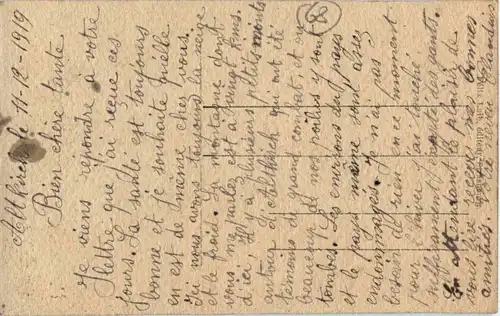 Altkirch le 14-12-1919
Bien chère tante
Je viens répondre à votre
lettre que j'ai reçue ces
jours. La santé est toujours
bonne et je souhaite qu'elle
en est de même chez vous.
Ici nous avons toujours la neige
et le froid. La montagne dont
vous me parlez est à vingt kms.
d'ici, il y a plusieurs petits monts
autour d'Altkirch qui ont été
témoins de grand combat, et où
beaucoup de nos poilus y sont
tombés. Les environs
et le pays même sont assez
endommagés. Je n'ai pas
besoin de rien en ce moment
pour l'hiver j'ai touché
suffisamment
En attendant le plaisir de
vous lire recevez mes bonnes
amitiés.